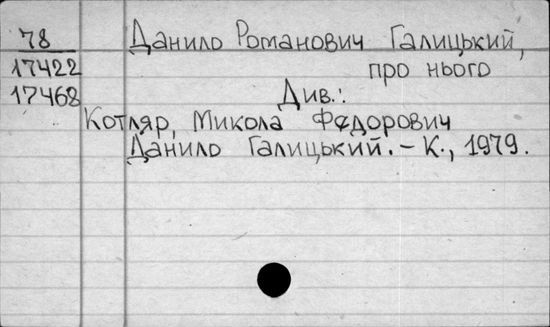 78 Данило Романович Галицький,
17422 про нього
17468 Див.:
Котляр, Микола Федорович
Данило Галицький. – К., 1979.